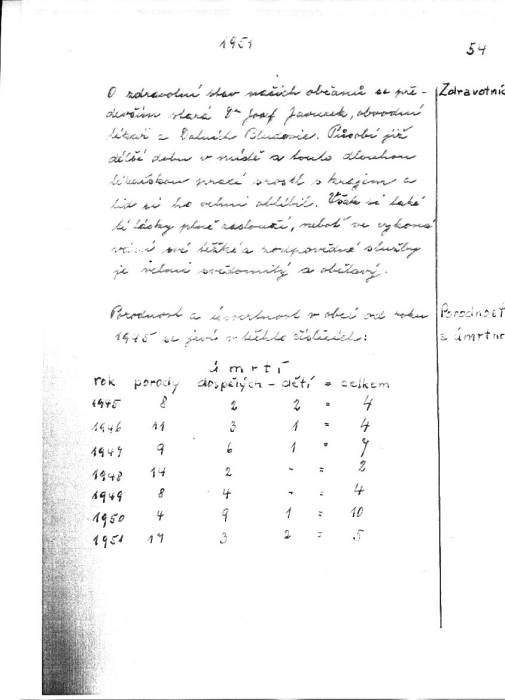 1951
54
O zdravotní stav našich občanů se pře-
devším stará Dr Josef Javurek, obvodní
lékař z Dolních Bludovic. Působí již
delší dobu v místě a touto dlouhou
lékařskou prací srostl s krajem a
lid si ho velmi oblíbil. Však si také
té lásky plně zaslouží, neboť ve vykoná
vání své těžké a zodpovědné služby
je velmi svědomitý a obětavý.
Zdravotnic
Porodnost a úmrtnost v obci od roku
1945 se jeví v těchto číslicích:
Porodnost
a úmrtno
úmrtí
rok porody dospělých - dětí = celkem
1945 8 2 2 = 4
1946 11 3 1 = 4
1947 9 6 1 = 7
1948 14 2 - = 2
1949 8 4 - = 4
1950 4 9 1 = 10
1951 17 3 2 = 5